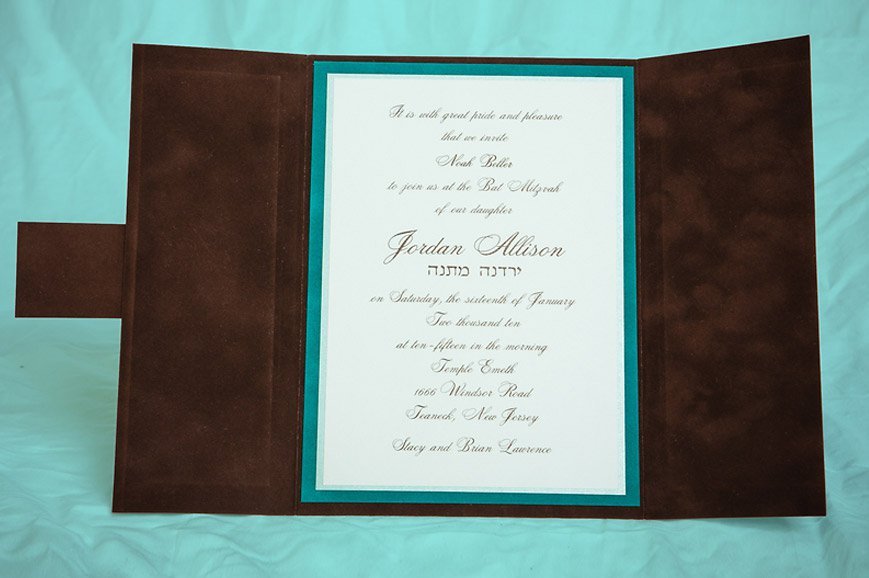 It is with great pride and pleasure
that we invite
Noah Beller
to join us at the Bat Mitzvah
of our daughter
Jordan Allison
ירדנה מתנה
on Saturday, the sixteenth of January
Two thousand ten
at ten-fifteen in the morning
Temple Emeth
1666 Windsor Road
Teaneck, New Jersey
Stacy and Brian Lawrence